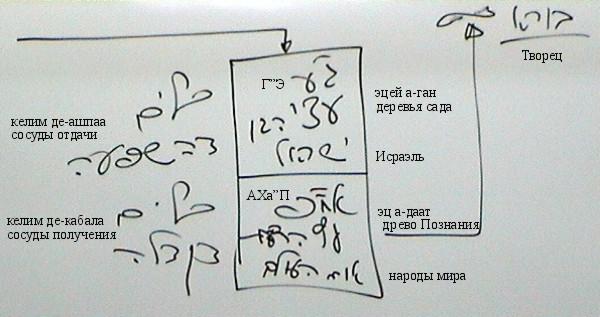 בורא
Творец
Г"Э
ג"ע
эцей а-ган
деревья сада
עצי הגן
Исраэль
ישראל
келим де-ашпаа
сосуды отдачи
כלים
דהשפעה
АХа"П
אח"פ
эц а-даат
древо Познания
עץ הדעת
народы мира
келим де-кабала
сосуды получения
כלים
דקבלה